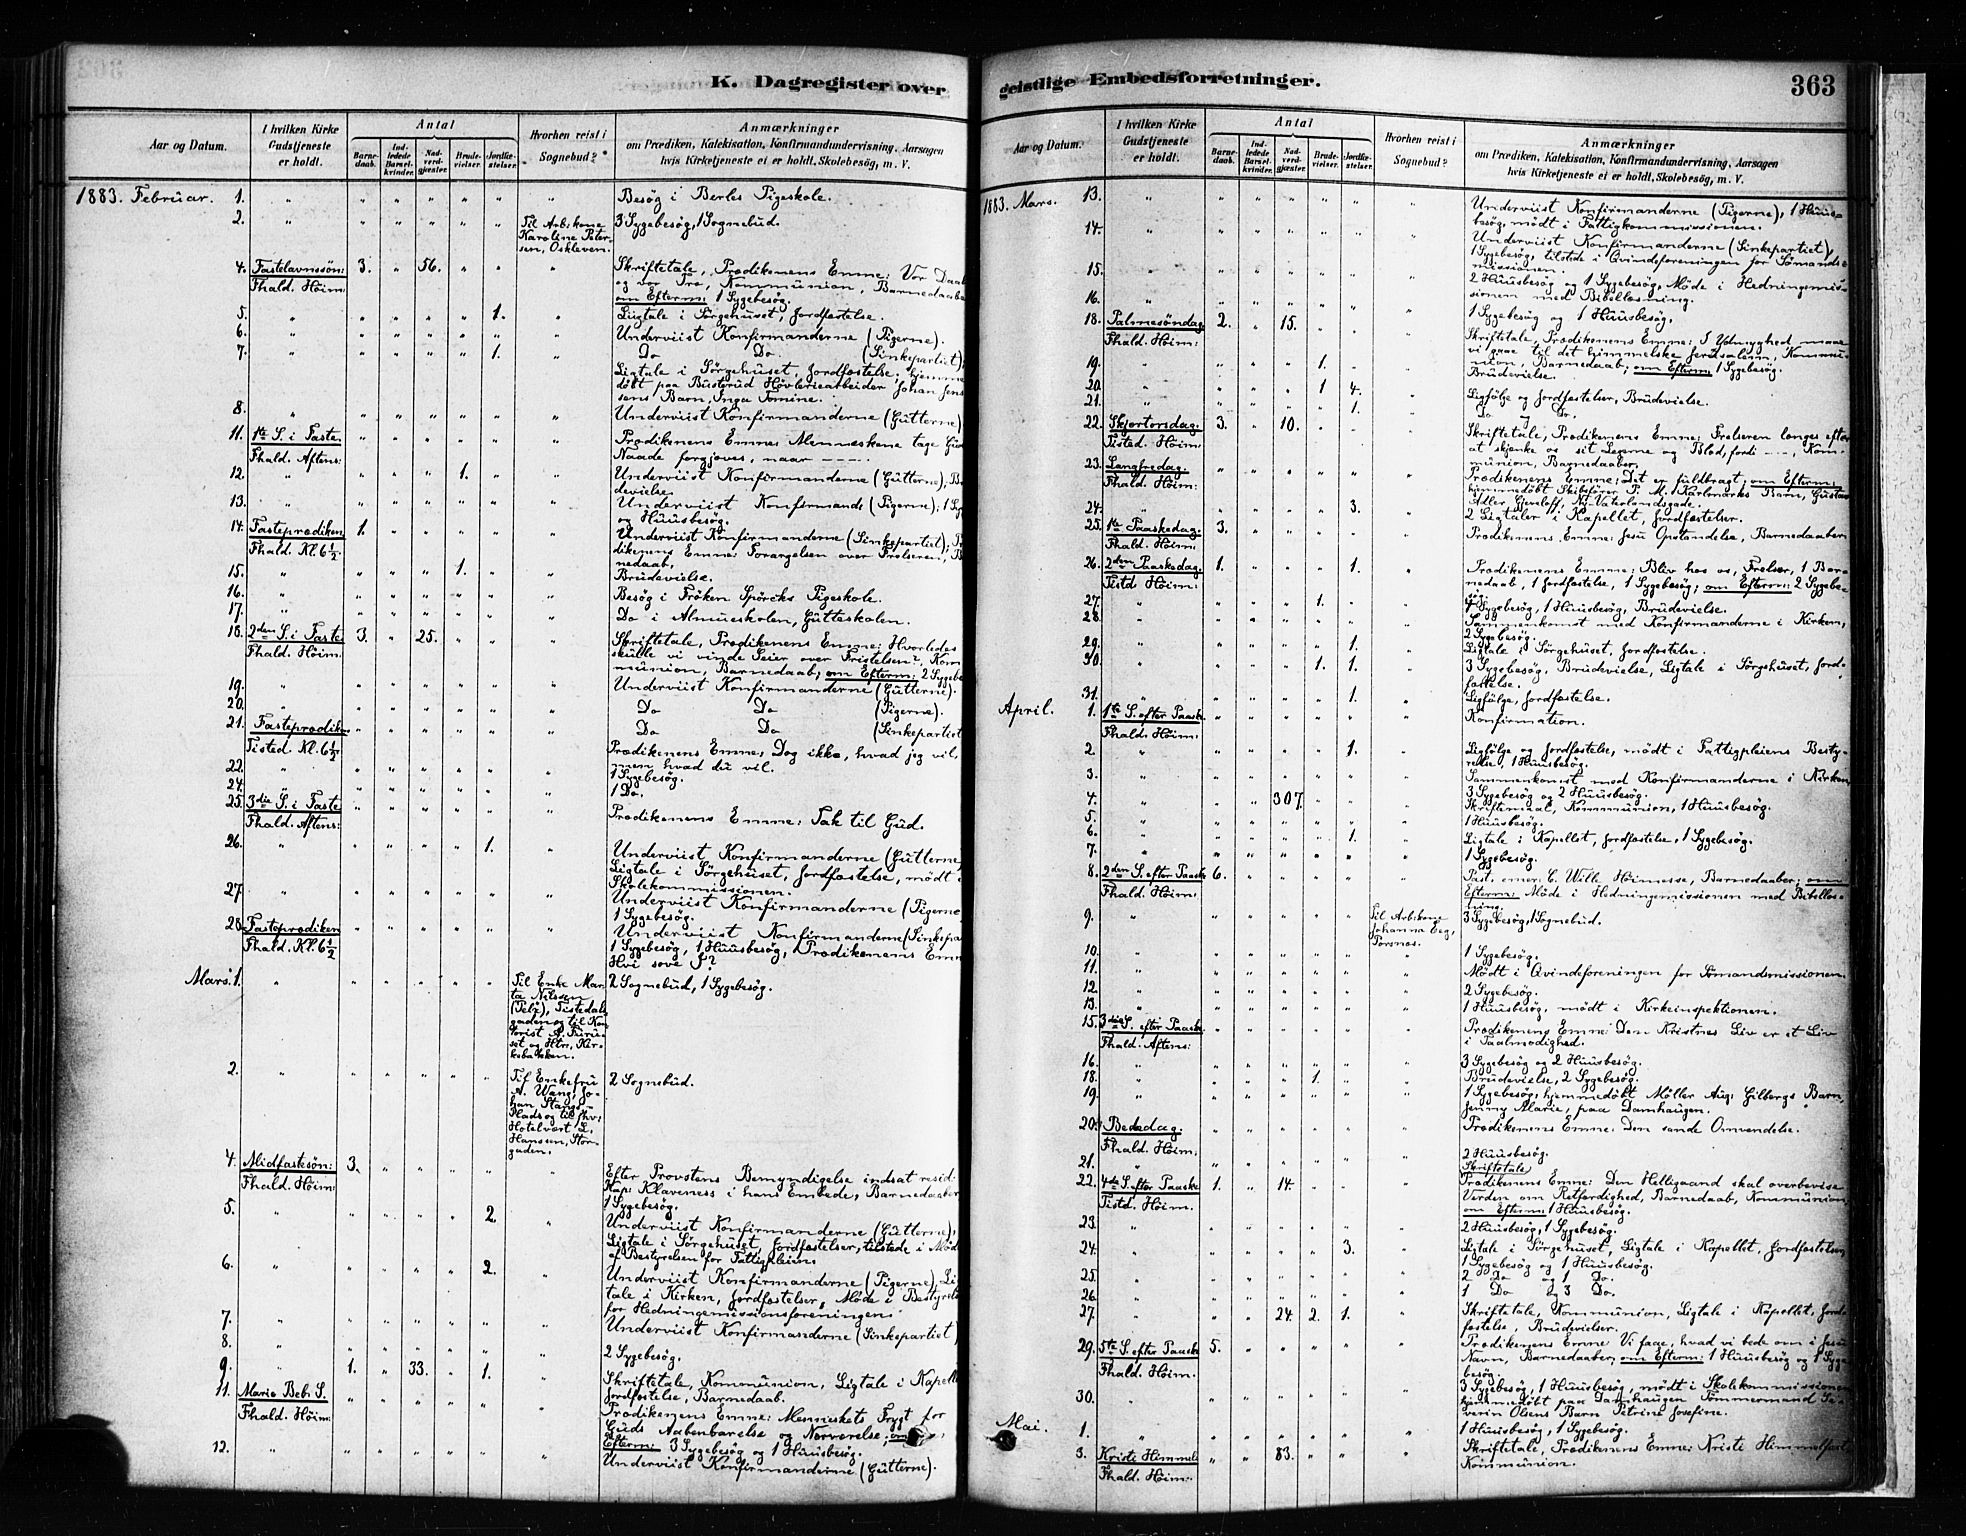 K. Dagregister over
Aar og Datum.
I hvilken Kirke Gudstjeneste er holdt.
Antal
Barnedaab.
Indledede Barselkvinder.
Nadverdgjæster.
Brudevielser.
Jordfæstelser.
Hvorhen reist i Sognebud?
Anmærkninger
om Prædiken, Katekisation, Konfirmandundervisning, Aarsagen
hvis Kirketjeneste ei er holdt, Skolebesøg, m. V.
1883. Februar. 1. " " " " " " " Besøg i Berles Pigeskole.
2. " " " " " " Til Arb:kone Karoline Petersen, Oskleven. 3 Sygebesøg, 1 Sognebud.
4. Fastelavnssön: Fhald. Höim: 3. " 56. " " " Skriftetale, Prædikenens Emne: Vor Daab
og vor Tro, Kommunion, Barnedaabe
om Efterm: 1 Sygebesøg.
5. " " " " " 1. " Ligtale i Sørgehuset, Jordfæstelse.
6. " " " " " " " Underviist Konfirmanderne (Pigerne).
7. " " " " " 1. " Do Do (Sinkepartiet),
Ligtale i Sørgehuset, Jordfæstelse. hjemme
döbt paa Busterud Høvleriearbeider Johan Jen
sens Barn, Inga Tomine.
8. " " " " " " " Underviist Konfirmanderne (Gutterne)
11. 1te S. i Faste. Fhald. Aftens: " " " " " " Prædikenens Emne: Menneskene tage Guds
Naade forgjæves, naar ----
12. " " " " 1. " " Underviist Konfirmanderne (Gutterne), B
devielse.
13. " " " " " " " Underviist Konfirmande (Pigerne), 1 Sy
og Huusbesøg.
14. Fasteprædiken Fhald. Kl. 6 1/2. 1. " " " " " Underviist Konfirmanderne (Sinkepartiet), P
dikenens Emne: Forargelsen over Frelseren, B
nedaab.
15. " " " " 1. " " Brudevielse.
16. " " " " " " " Besøg i Frøken Spørcks Pigeskole.
17. " " " " " " " Do i Almueskolen, Gutteskolen.
18. 2den S. i Faste Fhald. Höim. 3. " 25. " " " Skriftetale, Prædikenens Emne: Hvorledes
skulle vi vinde Seier over Fristelsen?, Kom
munion, Barnedaab, om Efterm: 2 Sygebe
19. " " " " " " " Underviist Konfirmanderne (Gutterne).
20. " " " " " " " Do Do (Pigerne).
21. Fasteprædiken Tisted Kl. 6 1/2 " " " " " " Do Do (Sinkepartiet
Prædikenens Emne: Dog ikke, hvad jeg vil,
men hvad du vil.
22. " " " " " " " 1 Sygebesøg.
24. " " " " " " " 1 Do.
25. 3die S. i Faste Fhald. Aftens: " " " " " " Prædikenens Emne: Tak til Gud.
26. " " " " " 1. " Underviist Konfirmanderne (Gutterne
Ligtale i Sørgehuset, Jordfæstelse, mødt i
Skolekommissionen.
27. " " " " " " " Underviist Konfirmanderne (Pigerne
1 Sygebesøg.
28. Fasteprædiken Fhald. Kl. 6 1/2 " " " " " " Underviist Konfirmanderne (Sinkepa
1 Sygebesøg, 1 Huusbesøg, Prædikenens Emn
Hvi sove I?
Mars. 1. " " " " " " Til Enke Marta Nilssen (Pelz), Tistedalsgaden og til 2 Sognebud, 1 Sygebesøg.
2. " " " " " " Til Enkefru A. Wang, Johan Stangs Plads og til Hotelvært L. Hansen, Storgaden. 2 Sognebud.
4. Midfastesön: Fhald. Höim: 3. " " " " " Efter Provstens Bemyndigelse indsat resid.
Kap: Klaveness i hans Embede, Barnedaaber
1 Sygebesøg.
5. " " " " " 2. " Underviist Konfirmanderne (Gutterne),
Ligtale i Sørgehuset, Jordfæstelser, tilstede i Mød
af Bestyrelsen for Fattigpleien.
6. " " " " " 2. " Underviist Konfirmanderne (Pigerne), Li
tale i Kirken, Jordfæstelser, Møde i Bestyrels
for Hedningemissionsforeningen.
7. " " " " " " " Underviist Konfirmanderne (Sinkepartiet)
8. " " " " " " " 2 Sygebesøg.
9. " 1. " 33. " 1. " Skriftetale, Kommunion, Ligtale i Kapelle
Jordfæstelse, Barnedaab.
11. Mariæ Beb. S. Fhald. Höim: " " " " " " Prædikenens Emne: Menneskets Frygt for
Guds Aabenbarelse og Nærværelse, om
Efterm: 3 Sygebesøg og 1 Huusbesøg.
12. " " " " " " " Underviist Konfirmanderne (Gutterne).
geistlige Embedsforretninger.
363
Aar og Datum.
I hvilken Kirke Gudstjeneste er holdt.
Antal
Barnedaab.
Indledede Barselkvinder.
Nadverdgjæster.
Brudevielser.
Jordfæstelser.
Hvorhen reist i Sognebud?
Anmærkninger
om Prædiken, Katekisation, Konfirmandundervisning, Aarsagen
hvis Kirketjeneste ei er holdt, Skolebesøg, m. V.
1883. Mars. 13. " " " " " " " Underviist Konfirmanderne (Pigerne), 1 Huus-
besøg, mødt i Fattigkommissionen.
14. " " " " " " " Underviist Konfirmanderne (Sinkepartiet),
1 Sygebesøg, tilstede i Qvindeforeningen for Sømands-
missionen.
15. " " " " " " " 2 Huusbesøg og 1 Sygebesøg, Møde i Hedningemis-
sionen med Bibellæsning.
16. " " " " " " " 1 Sygebesøg og 1 Huusbesøg.
18. Palmesøndag. Fhald. Höim: 2. " 15. " " " Skriftetale, Prædikenens Emne: I Ydmyghed maae
vi gaae til det himmelske Jerusalem, Kommu-
nion, Barnedaab, om Efterm: 1 Sygebesøg.
19. " " " " 1. " " Brudevielse.
20. " " " " 1 4. " Ligfølge og Jordfæstelser, Brudevielse.
21. " " " " " 1. " Do og Do.
22. Skjærtorsdag. Tisted. Höim: 3. " 10. " " " Skriftetale, Prædikenens Emne: Frelseren længes efter
at skjænke os sit Legeme og Blod, fordi ---, Kom-
munion, Barnedaaber.
23. Langfredag. Fhald. Höim: " " " " " " Prædikenens Emne: Det er fuldbragt; om Efterm:
hjemmedøbt Skibsfører P. M. Karlmarks Barn, Gustav
Adler Gjerløff,
24. " " " " " 3. " 2 Ligtaler i Kapellet, Jordfæstelser.
25. 1te Paaskedag. Fhald. Höim: 3. " " " " " Prædikenens Emne: Jesu Opstandelse, Barnedaaber.
26. 2den Paaskedag. Tistd Höim: 1. " " " 1. " Prædikenens Emne: Bliv hos os, Frelser, 1 Bar-
nedaab, 1 Jordfæstelse, 1 Sygebesøg; om Efterm: 2 Sygebe-
søg.
27. " " " " 1. " " 4 Sygebesøg, 1 Huusbesøg, Brudevielse.
28. " " " " " " " Sammenkomst med Konfirmanderne i Kirken,
2 Sygebesøg.
29. " " " " " 1. " Ligtale i Sørgehuset, Jordfæstelse.
30. " " " " 1. 1. " 3 Sygebesøg, Brudevielse, Ligtale i Sørgehuset, Jord-
fæstelse.
31. " " " " " 1. " Ligfølge, Jordfæstelse.
April. 1. 1te S. efter Paaske Fhald. Höim: " " " " " " Konfirmation.
2. " " " " " 1. " Ligfølge og Jordfæstelse, mødt i Fattigpleiens Besty-
relse, 1 Huusbesøg.
3. " " " " " " " Sammenkomst med Konfirmanderne i Kirken,
3 Sygebesøg og 2 Huusbesøg.
4. " " " 307. " " " Skriftemaal, Kommunion, 1 Huusbesøg.
5. " " " " " " " 1 Huusbesøg.
6. " " " " " 1. " Ligtale i Kapellet, Jordfæstelse, 1 Sygebesøg.
7. " " " " " " " 1 Sygebesøg.
8. 2den S. efter Paaske Fhald. Höim: 6. " " " " " Past. emer: C. Wille Höimesse, Barnedaaber; om
Efterm: Møde i Hedningemissionen med Bibellæs-
ning.
9. " " " " " " Til Arb:kone Johanna Eeg, Porsnæs. 3 Sygebesøg, 1 Sognebud.
10. " " " " " " " 1 Sygebesøg.
11. " " " " " " " Mødt i Qvindeforeningen for Sømandsmissionen.
12. " " " " " " " 2 Sygebesøg.
13. " " " " " " " 1 Huusbesøg, mødt i Kirkeinspektionen.
15. 3die S. efter Paaske Fhald. Aftens: " " " " " " Prædikenens Emne: Den Kristnes Liv er et Liv
i Taalmodighed.
16. " " " " " " " 3 Sygebesøg og 2 Huusbesøg.
18. " " " " 1. " " Brudevielse, 2 Sygebesøg.
19. " " " " " " " 1 Sygebesøg, hjemmedøbt Møller Aug: Gilbergs Barn,
Jenny Marie, paa Damhaugen.
20. Bededag. Fhald. Höim: " " " " " " Prædikenens Emne: Den sande Omvendelse.
21. " " " " " " " 2 Huusbesøg.
22. 4de S. efter Paaske Tistd. Höim. 1. " 14. " " " Skriftetale
Prædikenens Emne: Den Helligaand skal overbevise
Verden om Retfærdighed, Barnedaab, Kommunion,
om Efterm: 1 Huusbesøg.
23. " " " " " " " 2 Huusbesøg, 1 Sygebesøg.
24. " " " " " 3. " Ligtale i Sørgehuset, Ligtale i Kapellet, Jordfæstelser,
1 Sygebesøg og 1 Huusbesøg.
25. " " " " " " " 2 Do og 1 Do.
26. " " " " " " " 1 Do og 3 Do.
27. " " " 24. 2. 1. " Skriftetale, Kommunion, Ligtale i Kapellet, Jord-
fæstelse, Brudevielser.
29. 5te S. efter Paaske Fhald. Höim. 5. " " " " " Prædikenens Emne: Vi faae, hvad vi bede om i Jesu
Navn, Barnedaaber, om Efterm: 1 Huusbesøg og 1 Syge-
besøg.
30. " " " " " " " 3 Sygebesøg, 1 Huusbesøg, mødt i Skolekommissionen
hjemmedøbt paa Damhaugen Tømmermand Se-
verin Olsens Barn Petrine Josefine.
Mai. 1. " " " " " " " 1 Huusbesøg, 1 Sygebesøg.
3. Kristi Himmelf. Fhald. Höim: " " 83. " " " Skriftetale, Prædikenens Emne: Kristi Himmelfart,
Kommunion.